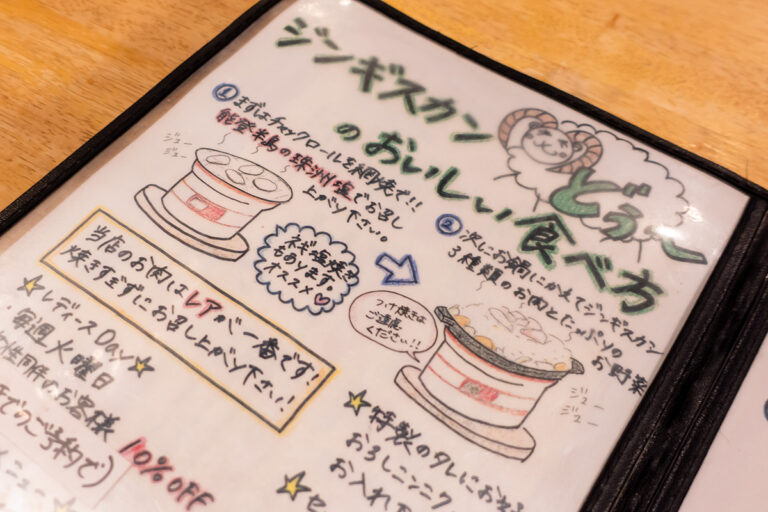 ジンギスカン
のおいしい食べ方
どぅ〜
① まずはチャックロールを網焼で!!
能登半島の珠洲塩でお召し
上がり下さい。
ジュー
ジュー
ネギ塩焼き
もあります。
オススメ♡
② 次にお鍋にかえてジンギスカン
3種類のお肉とたっぷりの
お野菜
フタ焼きは
ご遠慮
ください!!
ジュー
ジュー
当店のお肉はレアが一番です!
焼きすぎずにお召し上がり下さい!
☆レディースDay☆
毎週火曜日
女性同伴のお客様
でのご予約で)
10%OFF
☆特製のタレにお
おろしニンニク
お入れ
☆セ
メニュー